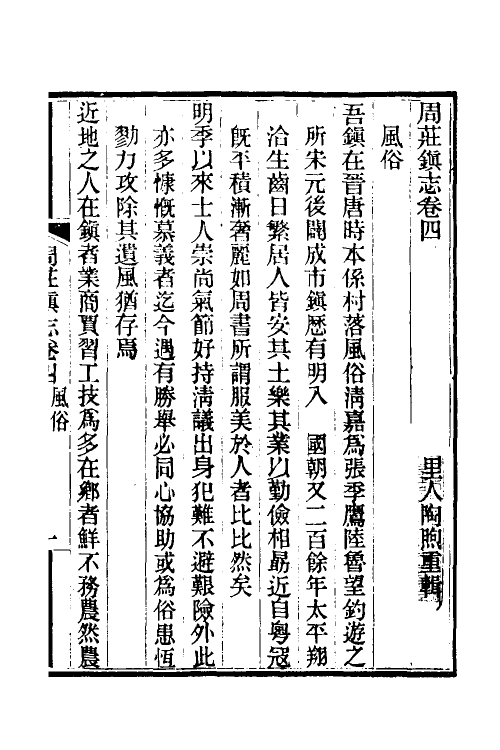 周莊鎮志卷四
里人陶煦重輯
風俗
吾鎮在晉唐時本係村落風俗淸嘉爲張季鷹陸魯望釣遊之
所宋元後闢成市鎮歷有明入　國朝又二百餘年太平翔
洽生齒日繁居人皆安其土樂其業以勤儉相勗近自粵冦
旣平積漸奢麗如周書所謂服美於人者比比然矣
明季以來士人崇尚氣節好持淸議出身犯難不避艱險外此
亦多慷慨慕義者迄今遇有勝舉必同心協助或爲俗患恆
勠力攻除其遺風猶存焉
近地之人在鎮者業商賈習工技爲多在鄕者鮮不務農然農
周莊鎮志卷四　風俗　一